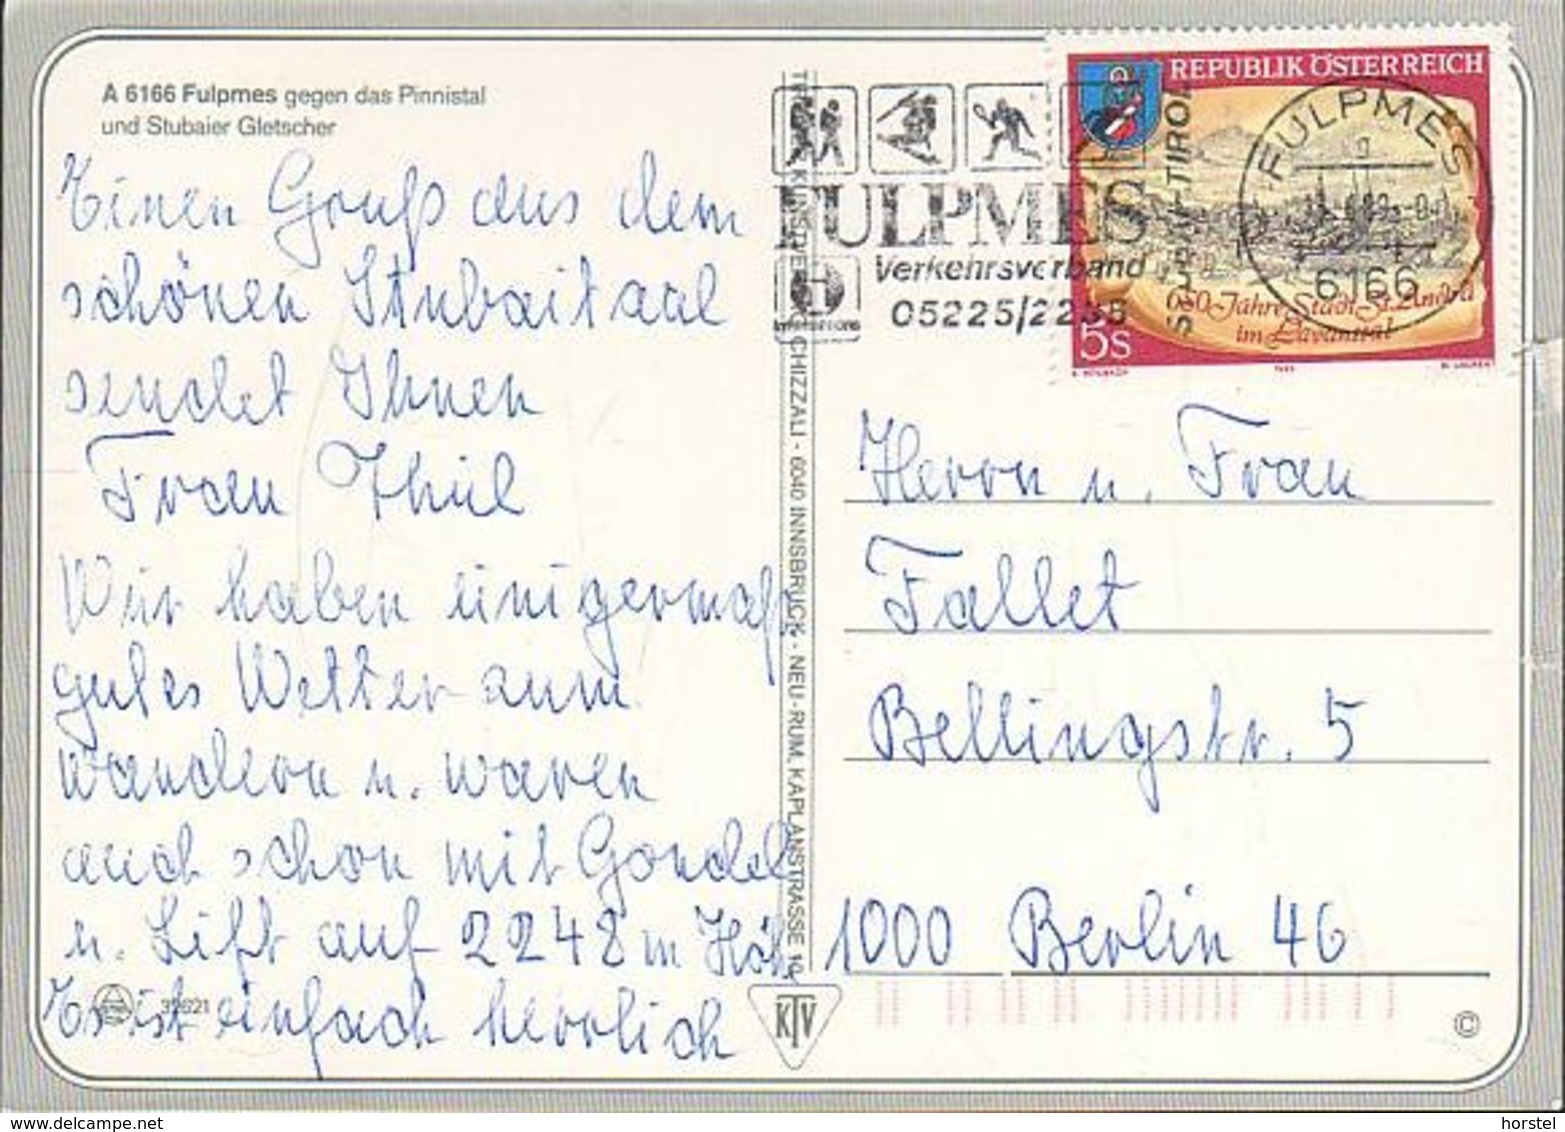 A 6166 Fulpmes gegen das Pinnistal
und Stubaier Gletscher
Einen Gruß aus dem
schönen Stubaitaal
sendet Ihnen
Frau Thiel
Wir haben einigermaß
gutes Wetter zum
wandern u. waren
auch schon mit Gondel
u. Lift auf 2248 m Höh
Es ist einfach herrlich
37621
CHIZZALI - 6040 INNSBRUCK - NEU-RUM, KAPLANSTRASSE
KTV
FULPMES
Verkehrsverband
05225/2235
TIROL
REPUBLIK ÖSTERREICH
650 Jahre Stadt St. Andrä
im Lavanttal
5S
FULPMES
6166
Herrn u. Frau
Fallet
Bellingstr. 5
1000 Berlin 46
©
horstel
www.delcampe.net